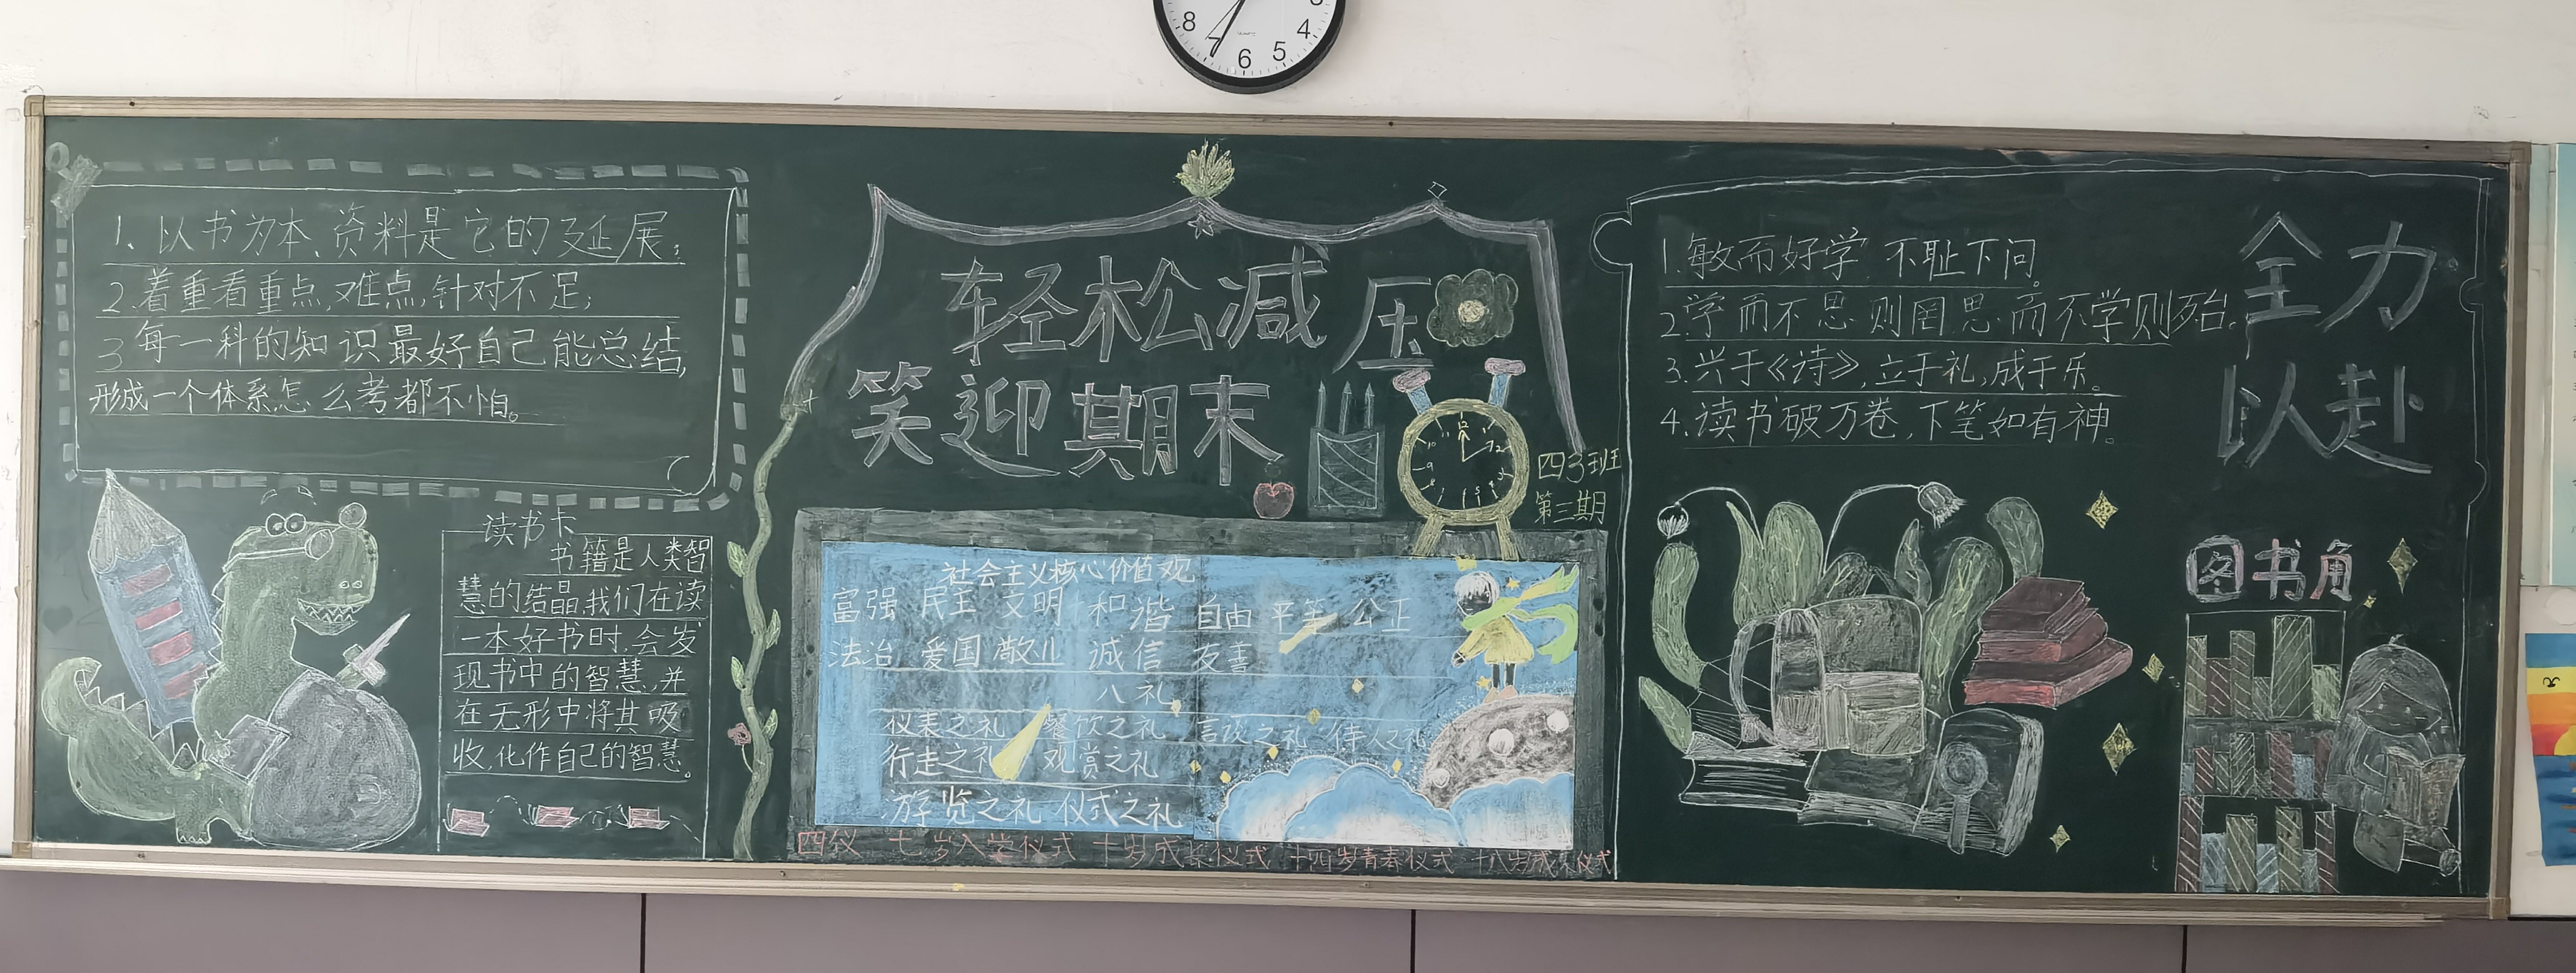 8 7 6 5 4
1. 以书为本、资料是它的延展；
2.着重看重点,难点,针对不足；
3 每一科的知识最好自己能总结,
形成一个体系,怎么考都不怕。
读书卡
书籍是人类智
慧的结晶,我们在读
一本好书时,会发
现书中的智慧,并
在无形中将其吸
收,化作自己的智慧。
轻松减压
笑迎期末
四3班
第三期
社会主义核心价值观
富强 民主 文明 和谐 自由 平等 公正
法治 爱国 敬业 诚信 友善
八礼
仪表之礼 餐饮之礼 言谈之礼 待人之礼
行走之礼 观赏之礼
游览之礼 仪式之礼
四仪 七岁入学仪式 十岁成长仪式 十四岁青春仪式 十八岁成人仪式
1.敏而好学 不耻下问。
2.学而不思则罔,思而不学则殆。
3.兴于《诗》,立于礼,成于乐。
4.读书破万卷,下笔如有神。
全力
以赴
图书角